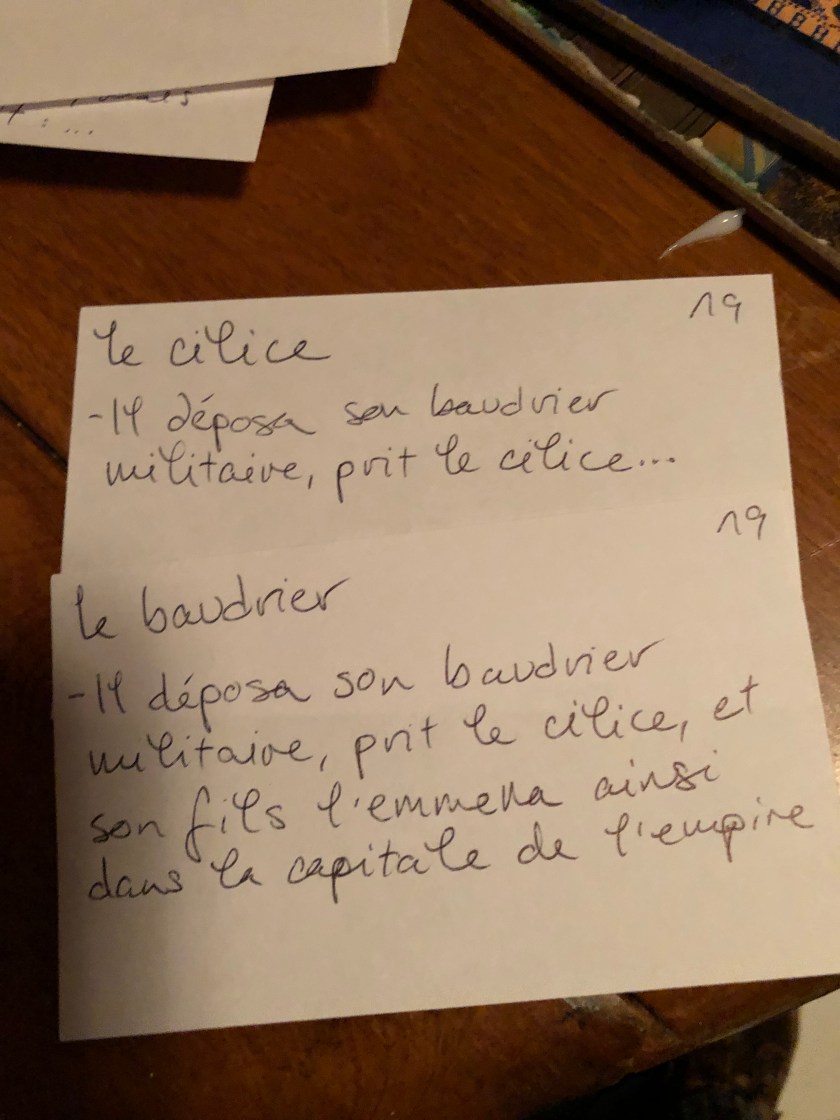 19
le cilice
- Il déposa son baudrier
militaire, prit le cilice...
19
le baudrier
- Il déposa son baudrier
militaire, prit le cilice, et
son fils l'emmena ainsi
dans la capitale de l'empire